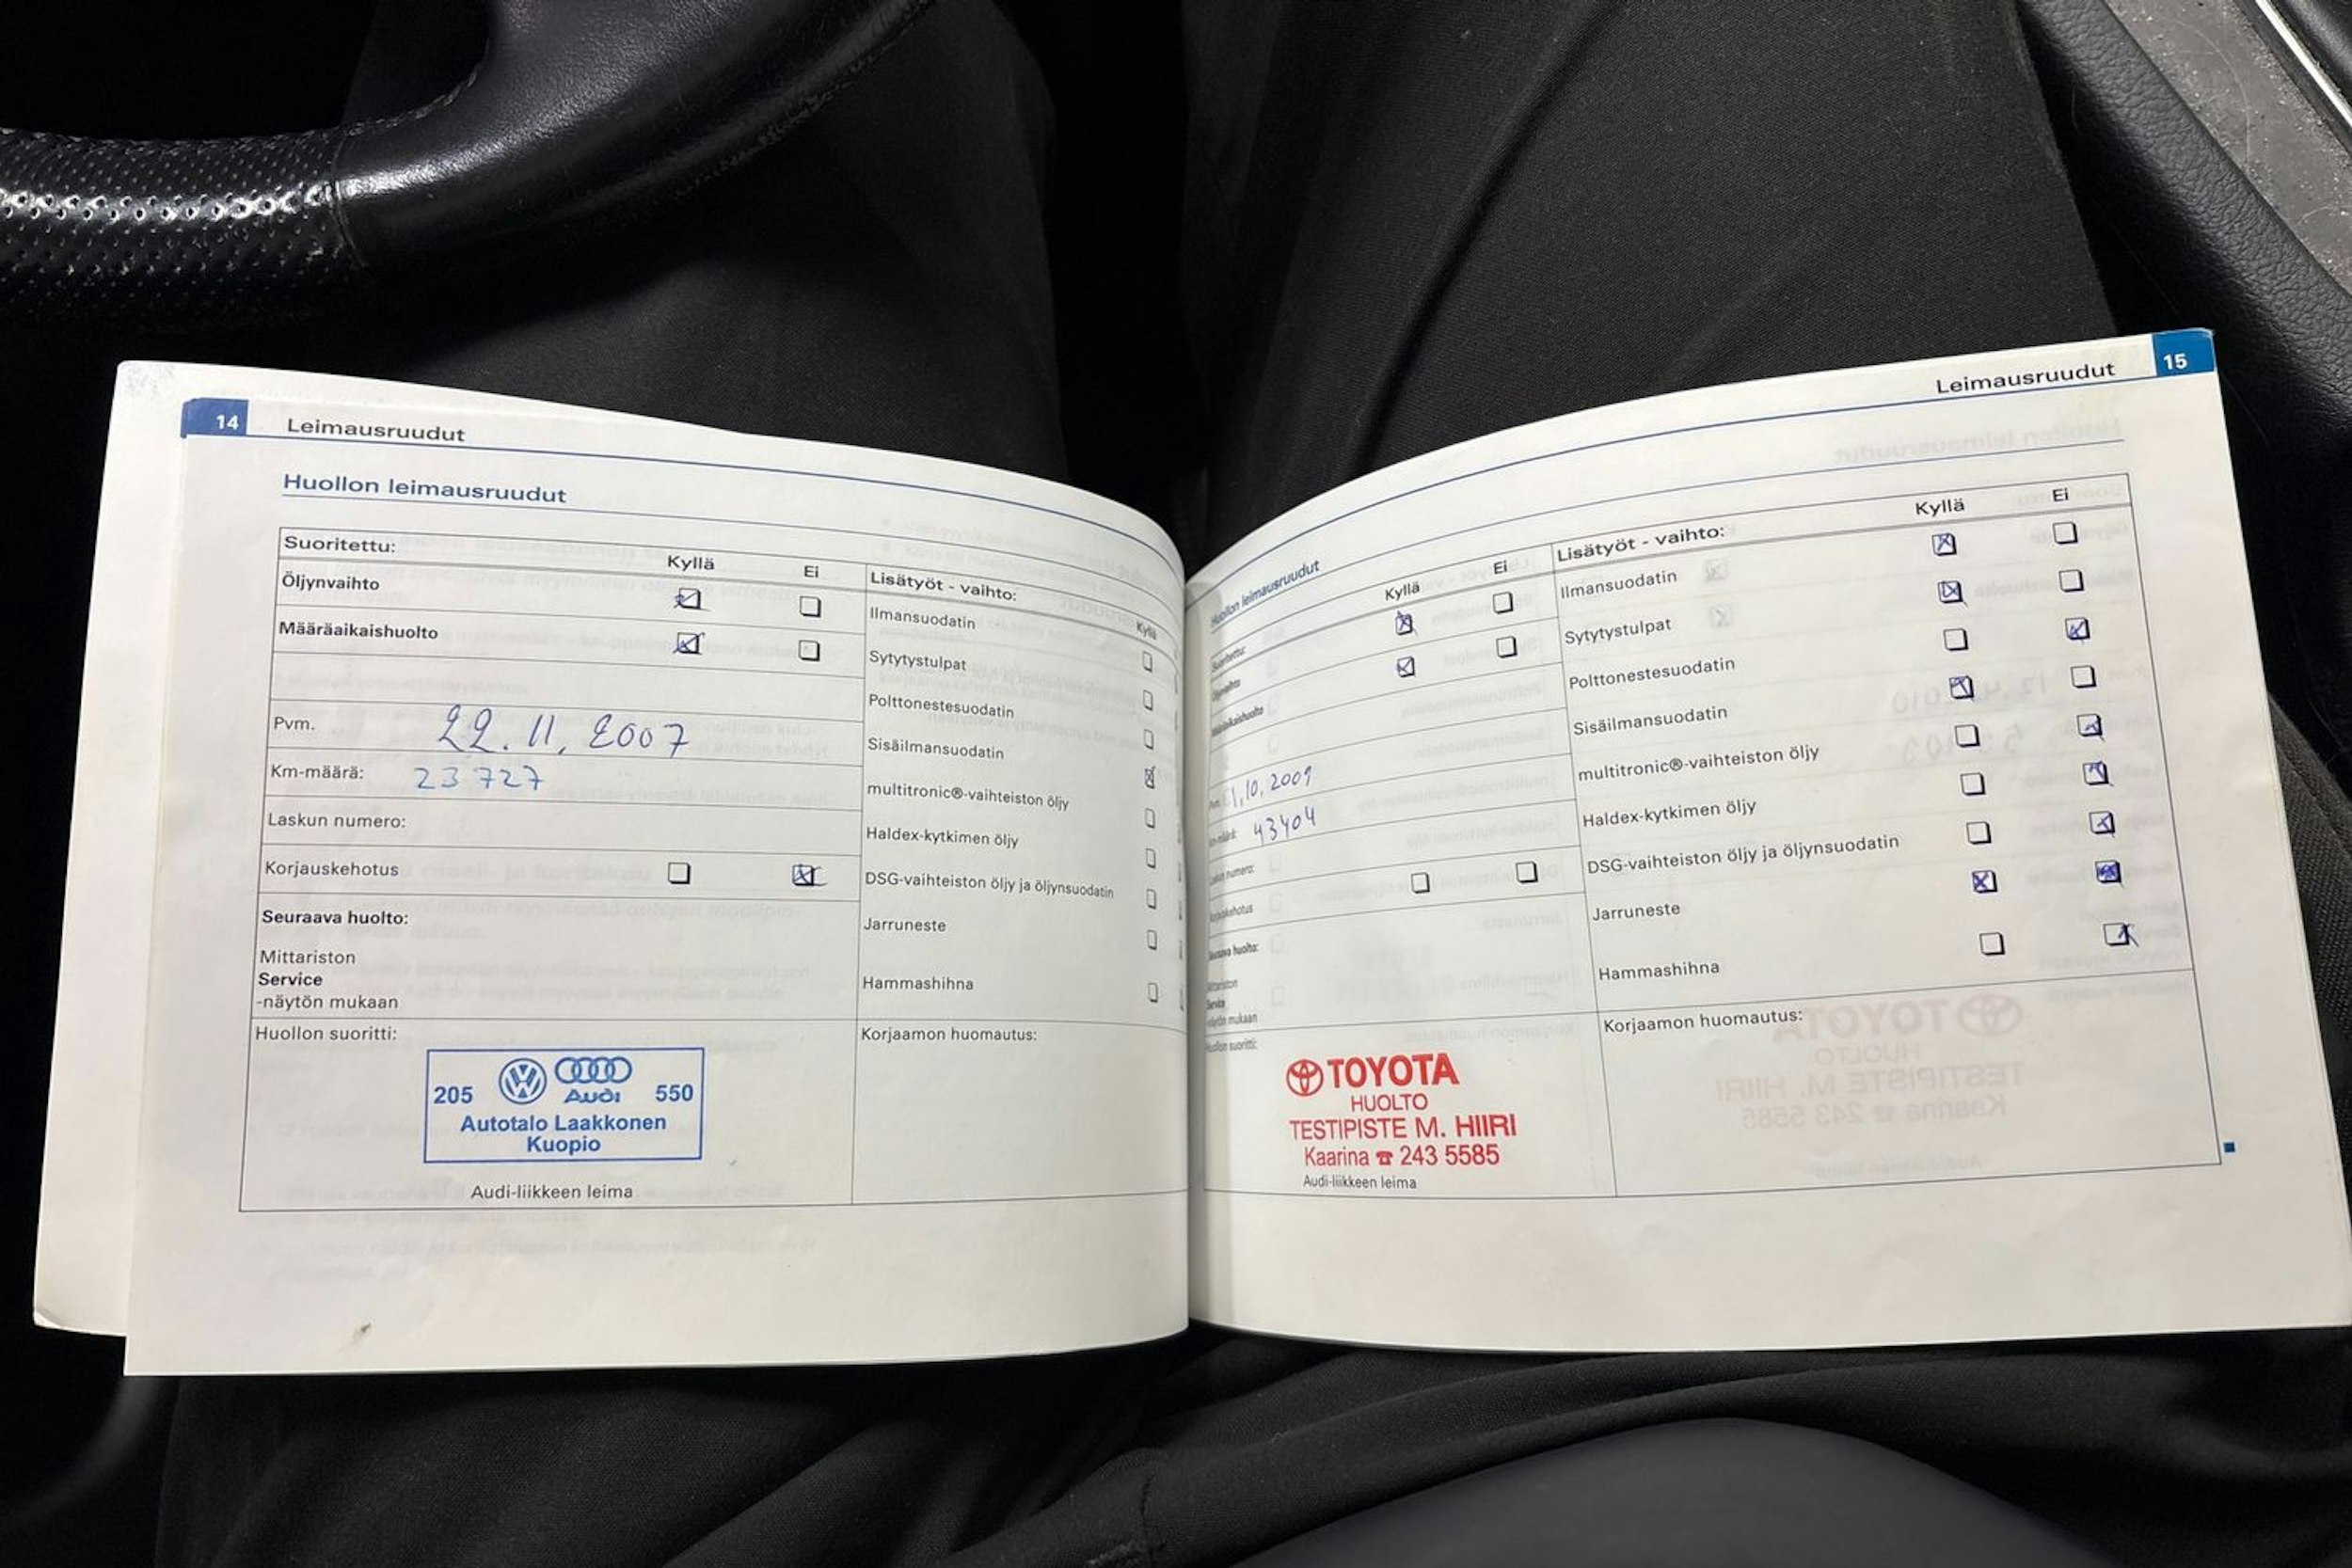 14 Leimausruudut
Huollon leimausruudut
Suoritettu: Kyllä Ei
Öljynvaihto
Määräaikaishuolto
Pvm. 22.11.2007
Km-määrä: 23727
Laskun numero:
Korjauskehotus
Seuraava huolto:
Mittariston
Service
-näytön mukaan
Huollon suoritti:
205 Audi 550
Autotalo Laakkonen
Kuopio
Audi-liikkeen leima
Lisätyöt - vaihto: Kyllä
Ilmansuodatin
Sytytystulpat
Polttonestesuodatin
Sisäilmansuodatin
multitronic®-vaihteiston öljy
Haldex-kytkimen öljy
DSG-vaihteiston öljy ja öljynsuodatin
Jarruneste
Hammashihna
Korjaamon huomautus:
Leimausruudut 15
Huollon leimausruudut
Suoritettu: Kyllä Ei
Öljynvaihto
Määräaikaishuolto
Pvm. 1.10.2009
Km-määrä: 43404
Laskun numero:
Korjauskehotus
Seuraava huolto:
Mittariston
Service
-näytön mukaan
Huollon suoritti:
TOYOTA
HUOLTO
TESTIPISTE M. HIIRI
Kaarina ☎ 243 5585
Audi-liikkeen leima
Lisätyöt - vaihto: Kyllä Ei
Ilmansuodatin
Sytytystulpat
Polttonestesuodatin
Sisäilmansuodatin
multitronic®-vaihteiston öljy
Haldex-kytkimen öljy
DSG-vaihteiston öljy ja öljynsuodatin
Jarruneste
Hammashihna
Korjaamon huomautus: